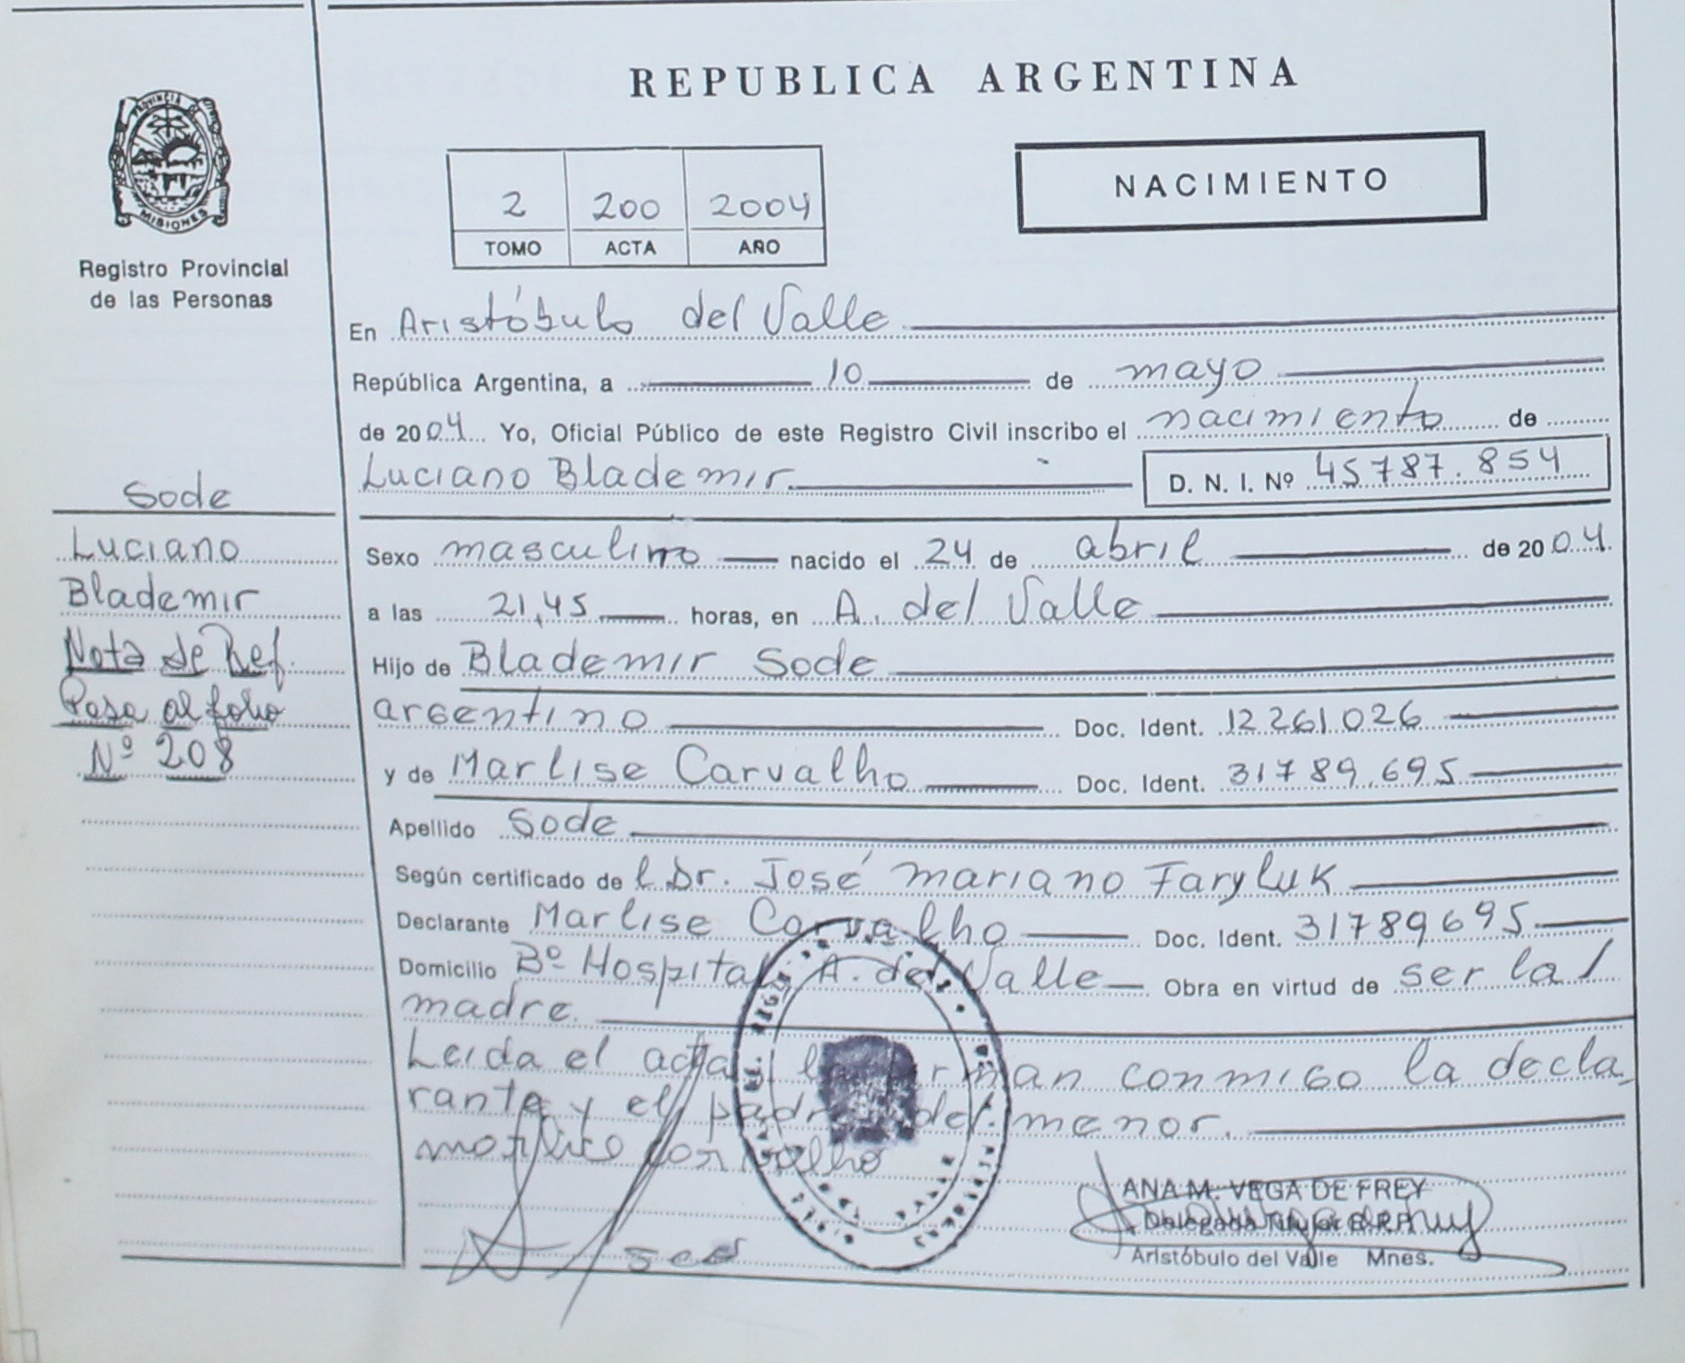 REPUBLICA ARGENTINA
PROVINCIA DE
MISIONES
Registro Provincial
de las Personas
2 200 2004
TOMO ACTA AÑO
NACIMIENTO
En Aristóbulo del Valle
República Argentina, a 10 de mayo
de 2004 Yo, Oficial Público de este Registro Civil inscribo el nacimiento de
Luciano Blademir D. N. I. Nº 45787.854
Sode
Luciano
Blademir
Nota de Ref.
Pasa al folio
Nº 208
Sexo masculino nacido el 24 de abril de 2004
a las 21,45 horas, en A. del Valle
Hijo de Blademir Sode
argentino Doc. Ident. 12261.026
y de Marlise Carvalho Doc. Ident. 31789.695
Apellido Sode
Según certificado del Dr. José Mariano Faryluk
Declarante Marlise Carvalho Doc. Ident. 31789695
Domicilio Bº Hospital A. del Valle Obra en virtud de ser la
madre.
Leida el acta la firman conmigo la decla
rante y el padre del menor.
Carvalho
ANA M. VEGA DE FREY
Delegada Titular R.P.P.
Aristóbulo del Valle Mnes.